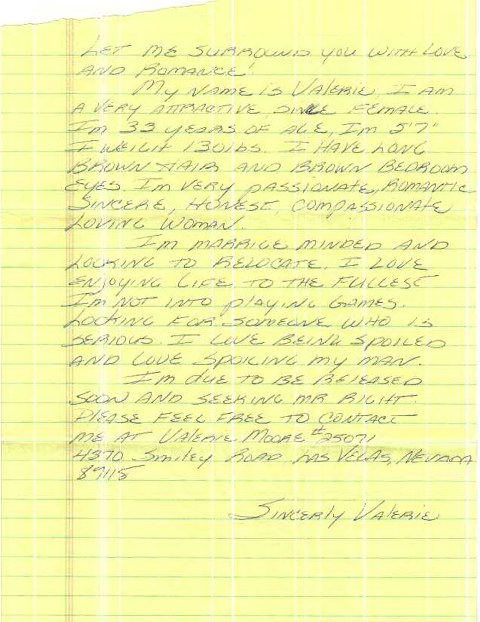 LET ME SURROUND YOU WITH LOVE
AND ROMANCE!
MY NAME IS VALERIE. I AM
A VERY ATTRACTIVE, SINGLE FEMALE.
I'M 33 YEARS OF AGE, I'M 5'7"
I WEIGH 130 lbs. I HAVE LONG
BROWN HAIR AND BROWN BEDROOM
EYES. I'M VERY PASSIONATE, ROMANTIC
SINCERE, HONEST, COMPASSIONATE
LOVING WOMAN.
I'M MARRIGE MINDED AND
LOOKING TO RELOCATE. I LOVE
ENJOYING LIFE TO THE FULLEST
I'M NOT INTO PLAYING GAMES.
LOOKING FOR SOMEONE WHO IS
SERIOUS. I LOVE BEING SPOILED
AND LOVE SPOILING MY MAN.
I'M DUE TO BE RELEASED
SOON AND SEEKING MR RIGHT.
PLEASE FEEL FREE TO CONTACT
ME AT VALERIE MOORE #25071
4370 SMILEY ROAD LAS VEGAS, NEVADA
89115
SINCERLY VALERIE